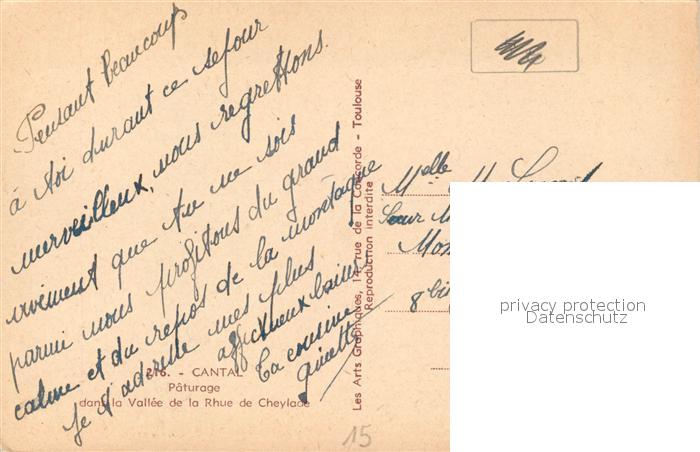 Pensant beaucoup
à toi durant ce sejour
merveilleux, nous regrettons
vraiment que tu ne sois
parmi nous profitons du grand
calme et du repos de la montagne
Je t'adresse mes plus
affectueux baisers
Ta cousine
Ginette
216. - CANTAL
Pâturage
dans la Vallée de la Rhue de Cheylade
Les Arts Graphiques, 14, rue de la Concorde - Toulouse
Reproduction interdite
Melle
Sœur
8 bis
15
privacy protection
Datenschutz